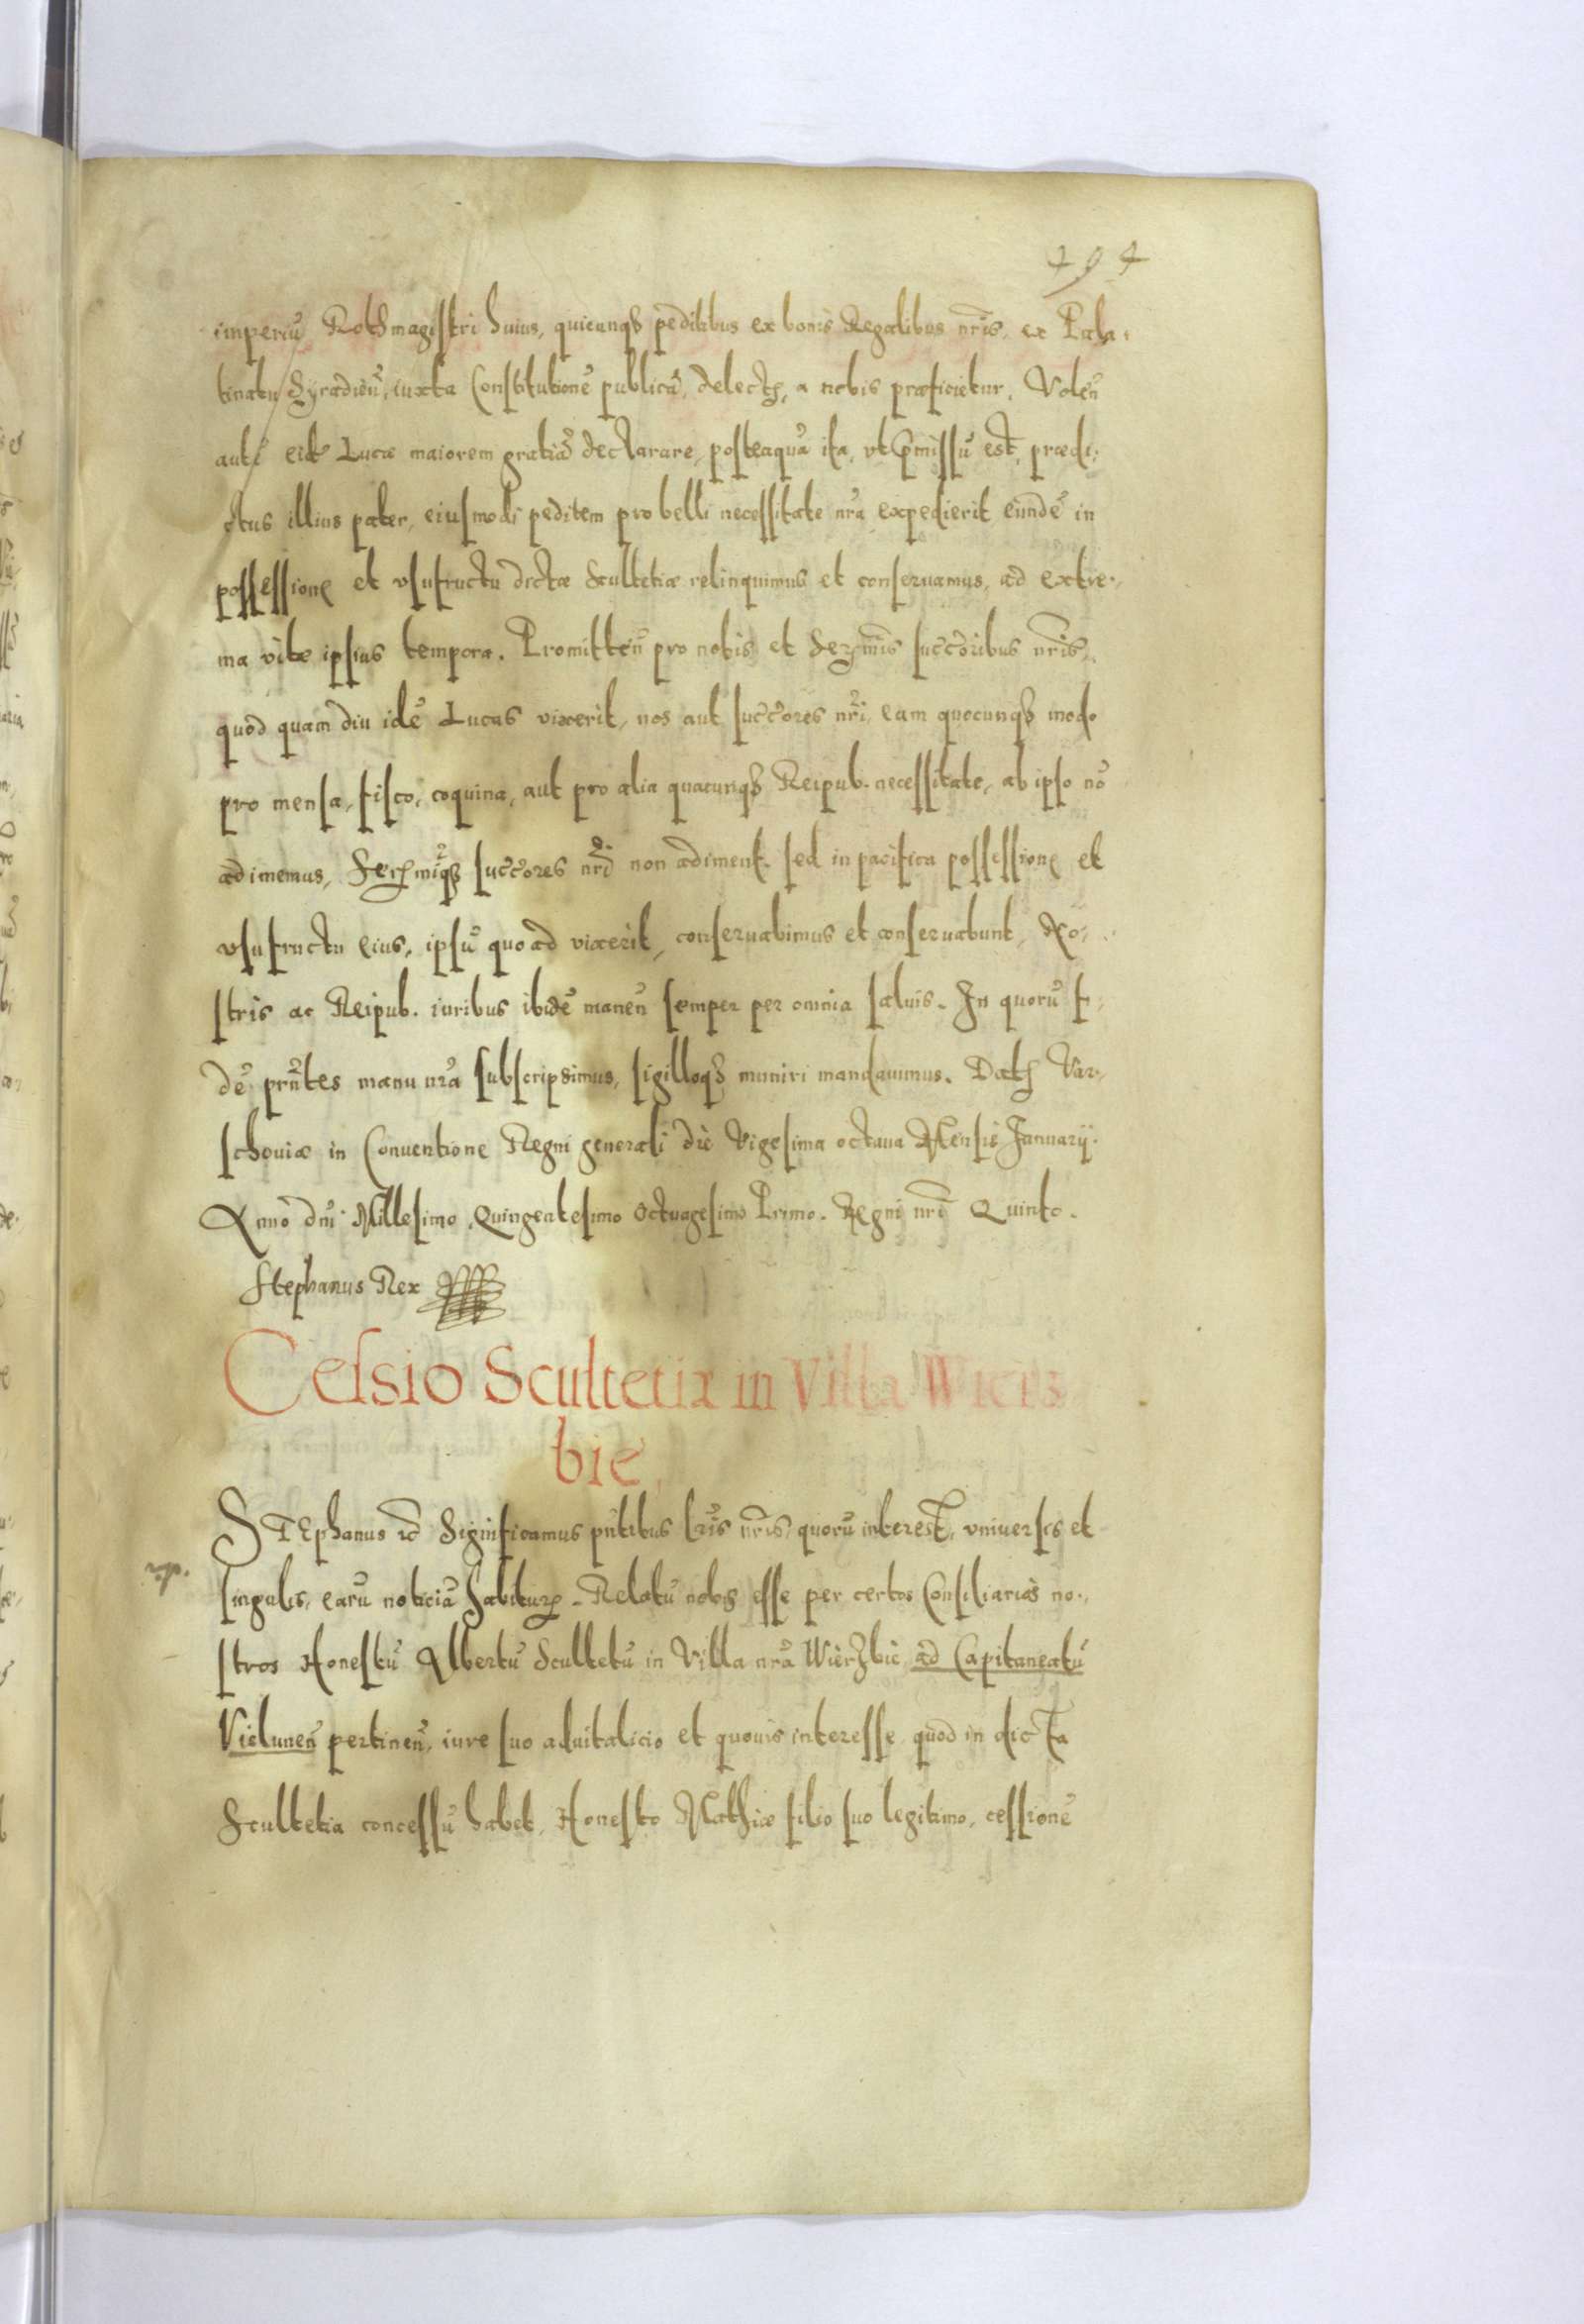 494
imperiũ Rothmagistri huius, quicunq₃ peditibus ex bonis Regalibus nr̃is, ex Pala-
tinatu Syradieñ, iuxta Constitutionẽ publicã, delectis, a nobis præficietur. Voleñ
autẽ eidẽ Lucæ maiorem gratiã declarare, posteaquã ita, vt p̃missũ est, prædi-
ctus illius pater, eiusmodi peditem pro belli necessitate nr̃a expedierit eundẽ in
possessione et vsufructu dictæ Scultetiæ relinquimus et conseruamus, ad extre-
ma vitæ ipsius tempora. Promitteñ pro nobis et Serm̃is succ̃oribus nr̃is,
quod quam diu idẽ Lucas vixerit, nos aut succ̃ores nr̃i, eam quocunq₃ modo
pro mensa, fisco, coquina, aut pro alia quacunq₃ Reipub. necessitate, ab ipso nõ
adimemus, Serm̃iq₃ succ̃ores nr̃i non adiment. sed in pacifica possessione et
vsufructu eius, ipsũ quoad vixerit, conseruabimus et conseruabunt, No-
stris ac Reipub. iuribus ibidẽ maneñ semper per omnia saluis. In quorũ fi-
dẽ pr̃ntes manu nr̃a subscripsimus, sigilloq₃ muniri mandauimus. Datũ Var-
schouiæ in Conuentione Regni generali die Vigesima octaua Mensis Januarij.
Anno dñi Millesimo Quingentesimo Octuagesimo Primo. Regni nr̃i Quinto.
Stephanus Rex
Cessio Scultetiæ in Villa Wierz
bie.
STEphanus rc̃ Significamus pñtibus lr̃is nr̃is, quorũ interest, vniuersis et
singulis, earũ noticiã habituris. Relatũ nobis esse per certos Consiliarios no-
stros Honestũ Albertũ Scultetũ in Villa nr̃a Wierzbie ad Capitaneatũ
Vieluneñ pertineñ, iure suo aduitalicio et quouis interesse quod in dicta
Scultetia concessũ habet, Honesto Mathiæ filio suo legitimo, cessionẽ